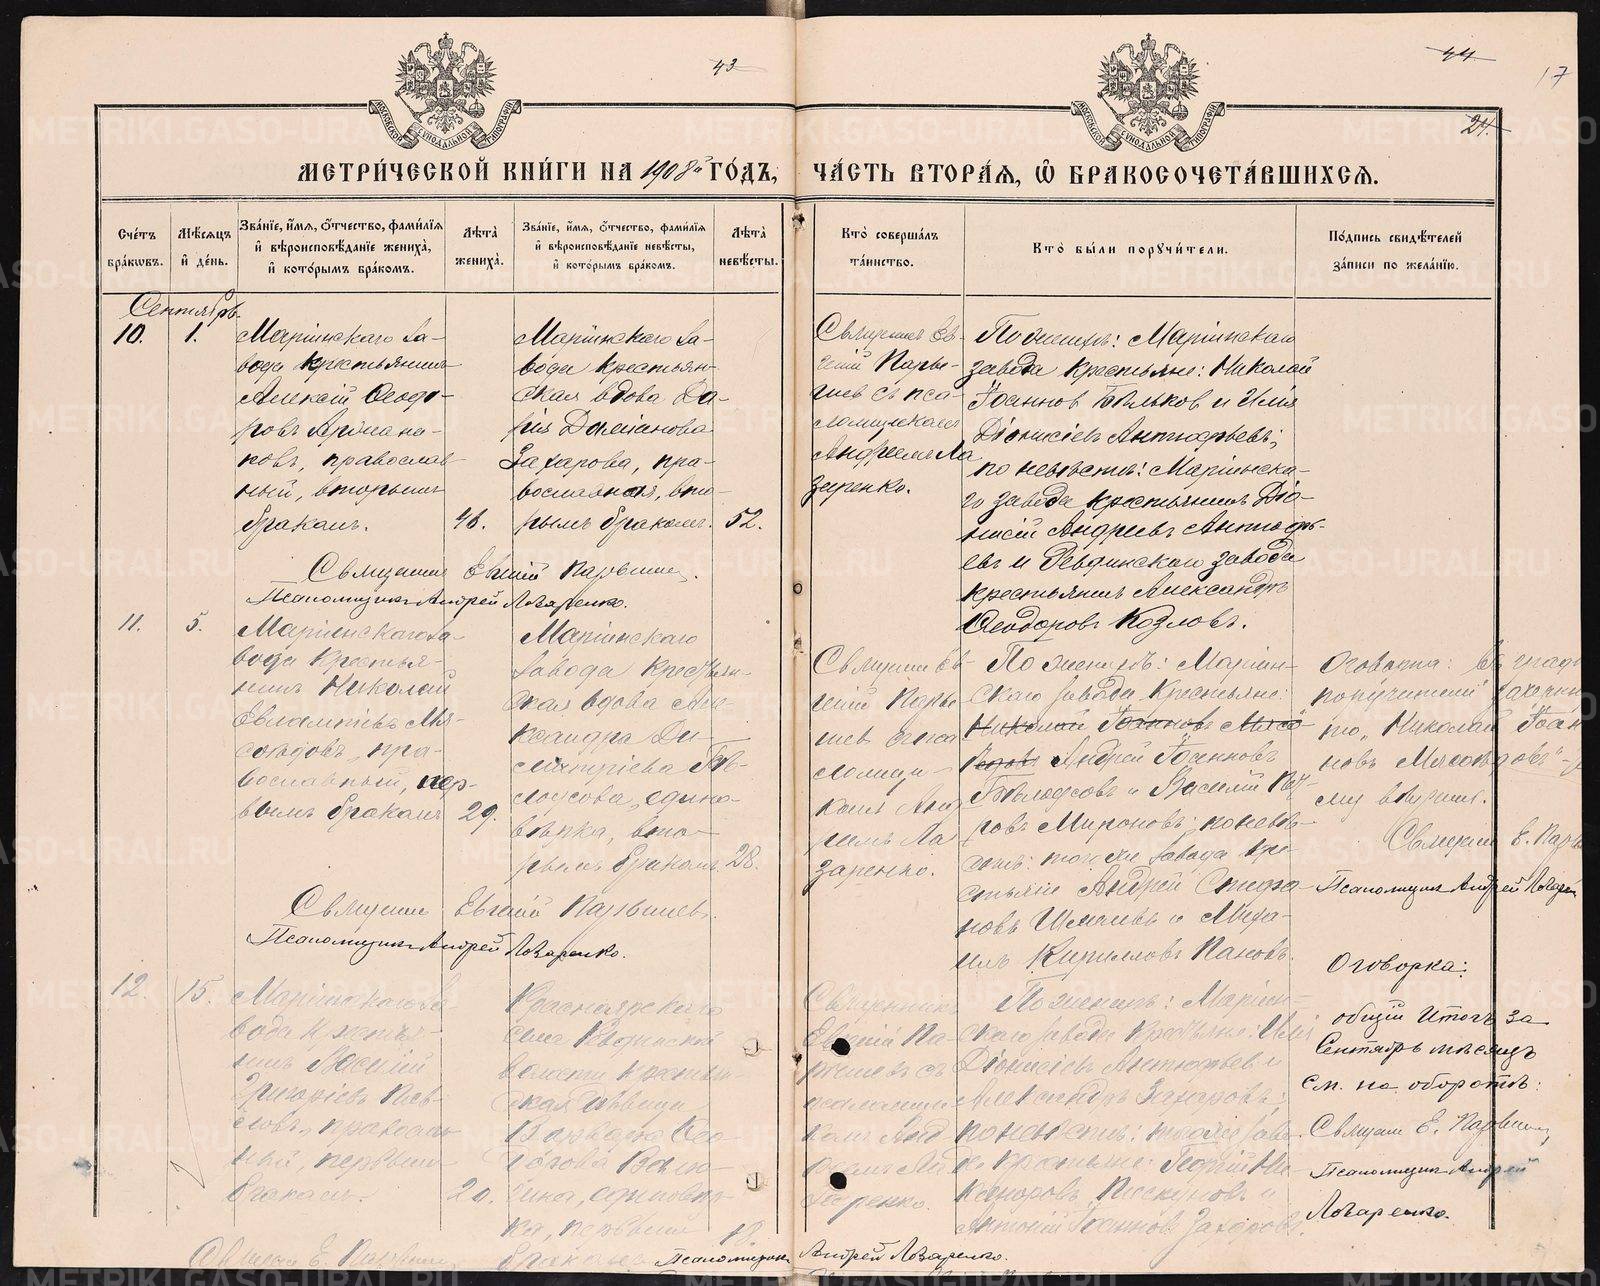 43
44
17
24.
МЕТРИ́ЧЕСКОЙ КНИ́ГИ НА 1908й ГО́ДЪ,
ЧА́СТЬ ВТОРА́Я, Ѡ БРАКОСОЧЕТА́ВШИХСЯ.
Сче́тъ бра́кѡвъ.
Мѣ́сяцъ и де́нь.
Зва́нїе, и́мя, ѻ́тчество, фами́лїя и вѣроисповѣ́данїе жениха̀, и кото́рымъ бра́комъ.
Лѣта̀ жениха̀.
Зва́нїе, и́мя, ѻ́тчество, фами́лїя и вѣроисповѣ́данїе невѣ́сты, и кото́рымъ бра́комъ.
Лѣта̀ невѣ́сты.
Кто̀ соверша́лъ та́инство.
Кто̀ бы́ли порꙋчи́тели.
По́дпись свидѣ́телей за́писи по жела́нїю.
Сентябрь.
10.
1.
Маріинскаго за-
вода крестьянинъ
Алексій Ѳеодо-
ровъ
православ-
ный, вторымъ
бракомъ.
46.
Маріинскаго за-
вода крестьян-
ская вдова Да-
рія Даміанова
Захарова, пра-
вославная, вто-
рымъ бракомъ.
52.
Священникъ Ев-
геній
съ пса-
ломщикомъ
Андреемъ Ла
заренко.
По женихѣ: Маріинскаго
завода крестьяне: Николай
Іоанновъ Бѣльковъ и Илія
Діонисіевъ Антюфьевъ;
по невѣстѣ: Маріинска-
го завода крестьянинъ Діо-
нисій Андреевъ Антюфь-
евъ и Ревдинскаго завода
крестьянинъ Александръ
Ѳеодоровъ Козловъ.
Священникъ Евгеній
Псаломщикъ Андрей Лазаренко.
11.
5.
Маріинскаго за-
вода крестья-
нинъ Николай
Евлампіевъ Мя-
соѣдовъ, пра-
вославный, пер-
вымъ бракомъ
29.
Маріинскаго
завода крестьян-
ская вдова Але-
ксандра Ди-
митріева Бѣ-
лоусова, едино-
вѣрка, вто-
рымъ бракомъ.
28.
Священникъ Ев-
геній
съ пса
ломщи-
комъ Анд
реемъ Ла
заренко.
По женихѣ: Маріин-
скаго завода крестьяне:
Николай Іоанновъ Мясо
ѣдовъ Андрей Іоанновъ
Бѣлоусовъ и Василій
Мироновъ; по невѣ-
стѣ: того же завода кре-
стьяне Андрей Стефа-
новъ Шмелевъ и Миха-
илъ Кирилловъ Пановъ.
Оговорка: въ графѣ
поручителей зачеркну
то „Николай Іоан
новъ Мясоѣдовъ"
му вѣрить.
Священникъ Е.
Псаломщикъ Андрей Лазарен
Священникъ Евгеній
Псаломщикъ Андрей Лазаренко.
12.
15.
Маріинскаго за-
вода крестья-
нинъ Василій
Григоріевъ
православ
ный, первымъ
бракомъ.
20.
Краснаярскаго
села Ревдинской
волости крестьян-
ская дѣвица
Варвара
единовѣр-
ка, первымъ
бракомъ
18.
Священникъ
Евгеній Па-
съ
псаломщи-
комъ Анд
реемъ Ла
заренко.
По женихѣ: Маріин-
скаго завода крестьяне: Илія
Діонисіевъ Антюфьевъ и
Александръ Захаровъ;
по невѣстѣ: того же заво-
да крестьяне: Георгій Ни
каноровъ Пискуновъ и
Антоній Іоанновъ Захаровъ.
Оговорка:
общій итогъ за
Сентябрь мѣсяцъ
см. на оборотѣ:
Священникъ Е.
Псаломщикъ Андрей
Лазаренко.
Священникъ Е.
Псаломщикъ Андрей Лазаренко.